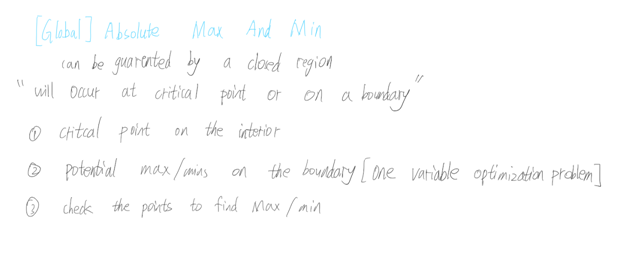 [Global] Absolute Max And Min
can be guarented by a closed region
"will occur at critical point or on a boundary"
① critcal point on the interior
② potential max/mins on the boundary [one variable optimization problem]
③ check the points to find Max/min